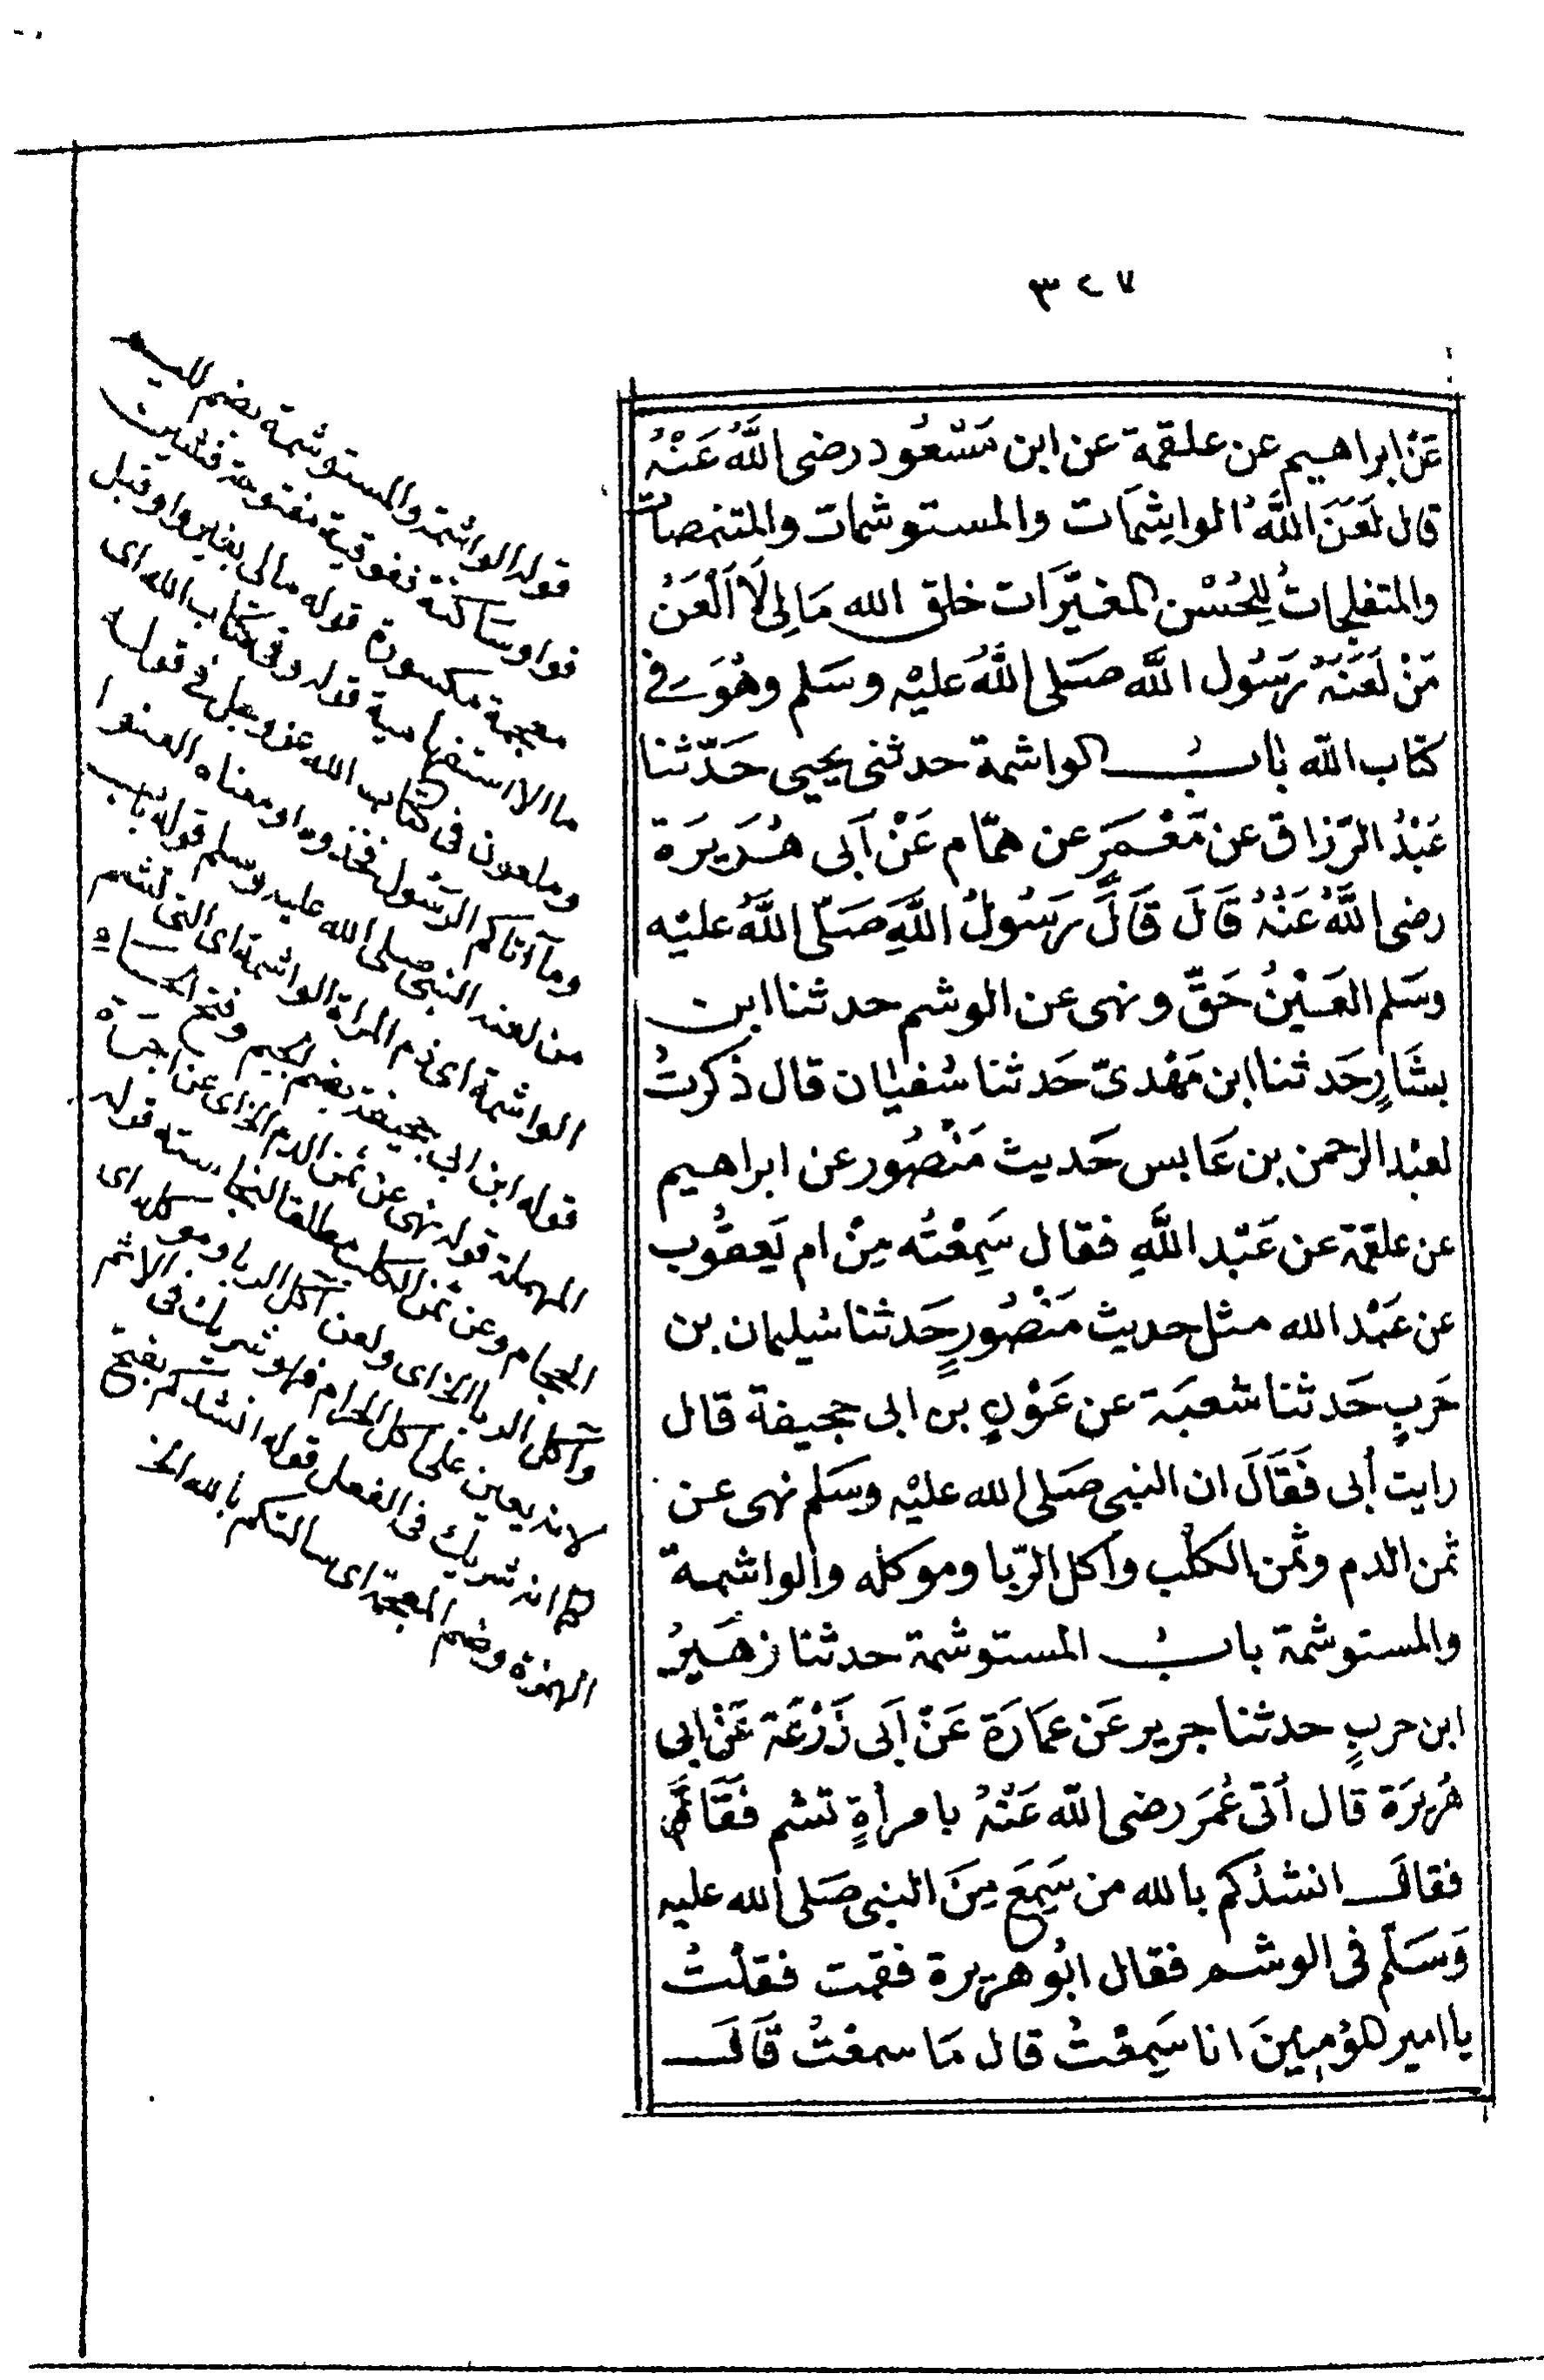 ٣٤٧
عَنْ ابراهيم عن علقمة عن ابن مَسْعُود رضى اللَّهُ عَنْهُ
قال لَعَنَ اللَّهُ الواشِمَات والمستوشمات والمتنمصات
والمتفلجاتُ لِلحُسْن المغيَّرَات خلق الله مَا لِى لَا اَلْعَنُ
مَنْ لَعَنَهُ رَسُول اللَّه صَلى اللَّهُ عَليْه وسَلم وهُوَ فى
كتاب اللّه بابُ الواشمة حدثنى يحيى حَدّثنا
عَبْدُ الرّزاق عن مَعْمَرٍ عن همّام عَنْ اَبى هُرَيرَة
رضى اللَّهُ عَنْهُ قَالَ قَالَ رَسُولُ اللَّهِ صَلّى اللَّهُ عليْه
وسَلم العَيْنُ حَقّ ونهى عن الوشم حدثنا ابن
بشَارٍ حَدثنا ابن مَهْدىّ حَدثنا سُفيان قال ذكرتُ
لعبْد الرحمن بن عَابس حَديث مَنْصُور عن ابراهيم
عن علقمة عن عَبْد اللَّهِ فقال سَمِعْتُه مِنْ ام يَعقُوب
عن عَبْد الله مثل حديث مَنْصُورٍ حَدثنا سُليمان بن
حَربٍ حَدثنا شعبَة عن عَوْنِ بن ابى جحيفة قال
رايت أبى فَقَالَ ان النبى صَلى الله عليْه وسَلم نهى عن
ثمن الدم وثمن الكلْب وآكل الرّبا وموكله والواشمة
والمستوشمة بابُ المستوشمة حدثنا زهَيرُ
ابن حربٍ حدثنا جرير عَن عمَارَة عَنْ اَبى زَرْعَة عَنْ ابى
هُرَيرَة قال أتى عُمَر رضى اللّه عَنْهُ بامرأةٍ تشم فَقَامَ
فقال انشدُكم بالله من سَمِعَ مِنَ النبى صَلى الله عليه
وَسَلّم فى الوشم فقال ابُو هريرة فقمت فقلْتُ
يا امير المؤمِنِينَ انا سَمِعْتُ قال مَا سمعْتُ قَالَ
قوله الواشمة والمستوشمة بضم الميم
فواو ساكنة ففوقية مفتوحة فشين
معجمة مكسورة قوله مالى بغير واو قبل
ما الاستفهامية قوله وفى كتاب الله اى
وملعون فى كتاب الله عز وجل فى قوله
وما آتاكم الرسُول فخذوه او معناه العنوا
من لعنه النبى صلى الله عليه وسلم قوله باب
الواشمة اى ذم المرأة الواشمة اى التى تشم
قوله ابن ابى جحيفة بضم الجيم وفتح الحاء
المهملة قوله نهى عن ثمن الدم الخ اى عن اجرة
الحجام وعن ثمن الكلب مطلقا لنجاسته قوله
وآكل الربا الخ اى ولعن آكل الربا وموكله اى
لانه يعين على اكل الحرام فهو شريك فى الاثم
كما انه شريك فى الفعل قوله انشدكم بفتح
الهمزة وضم المعجمة اى سالتكم بالله الخ